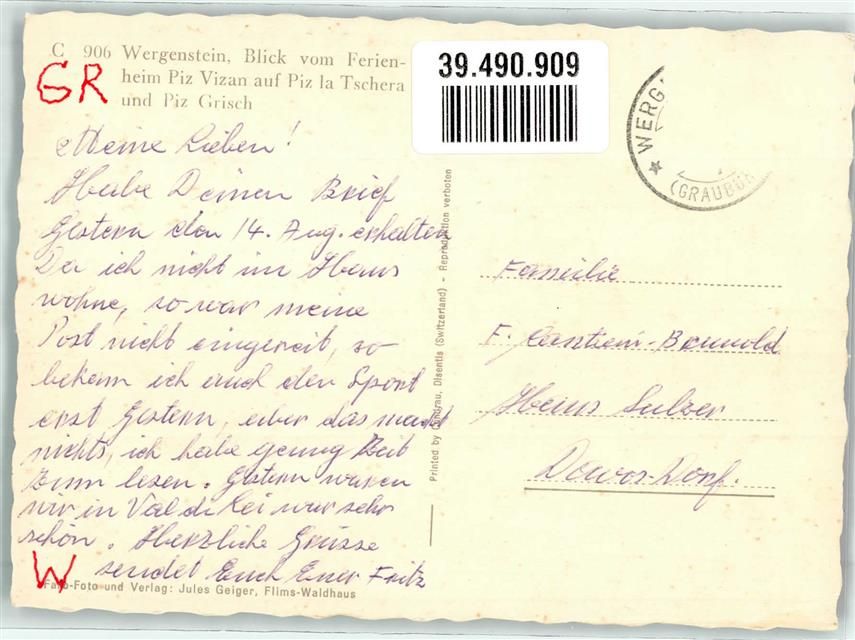 C 906 Wergenstein, Blick vom Ferien-
heim Piz Vizan auf Piz la Tschera
und Piz Grisch
GR
39.490.909
WERG
(GRAUBÜN
Meine Lieben!
Habe Deinen Brief
Gestern den 14. Aug. erhalten
Da ich nicht im Haus
wohne, so war meine
Post nicht eingereit, so
bekam ich auch den Sport
erst Gestern, aber das macht
nichts, ich habe genug Zeit
zum lesen. Gestern waren
wir in Val di Lei war sehr
schön. Herzliche Grüsse
sendet Euch Euer Fritz
W
Farb-Foto und Verlag: Jules Geiger, Flims-Waldhaus
Printed by Condrau, Disentis (Switzerland) - Reproduction verboten
Familie
F. Brunold
Haus Sulzer
Davos-Dorf.